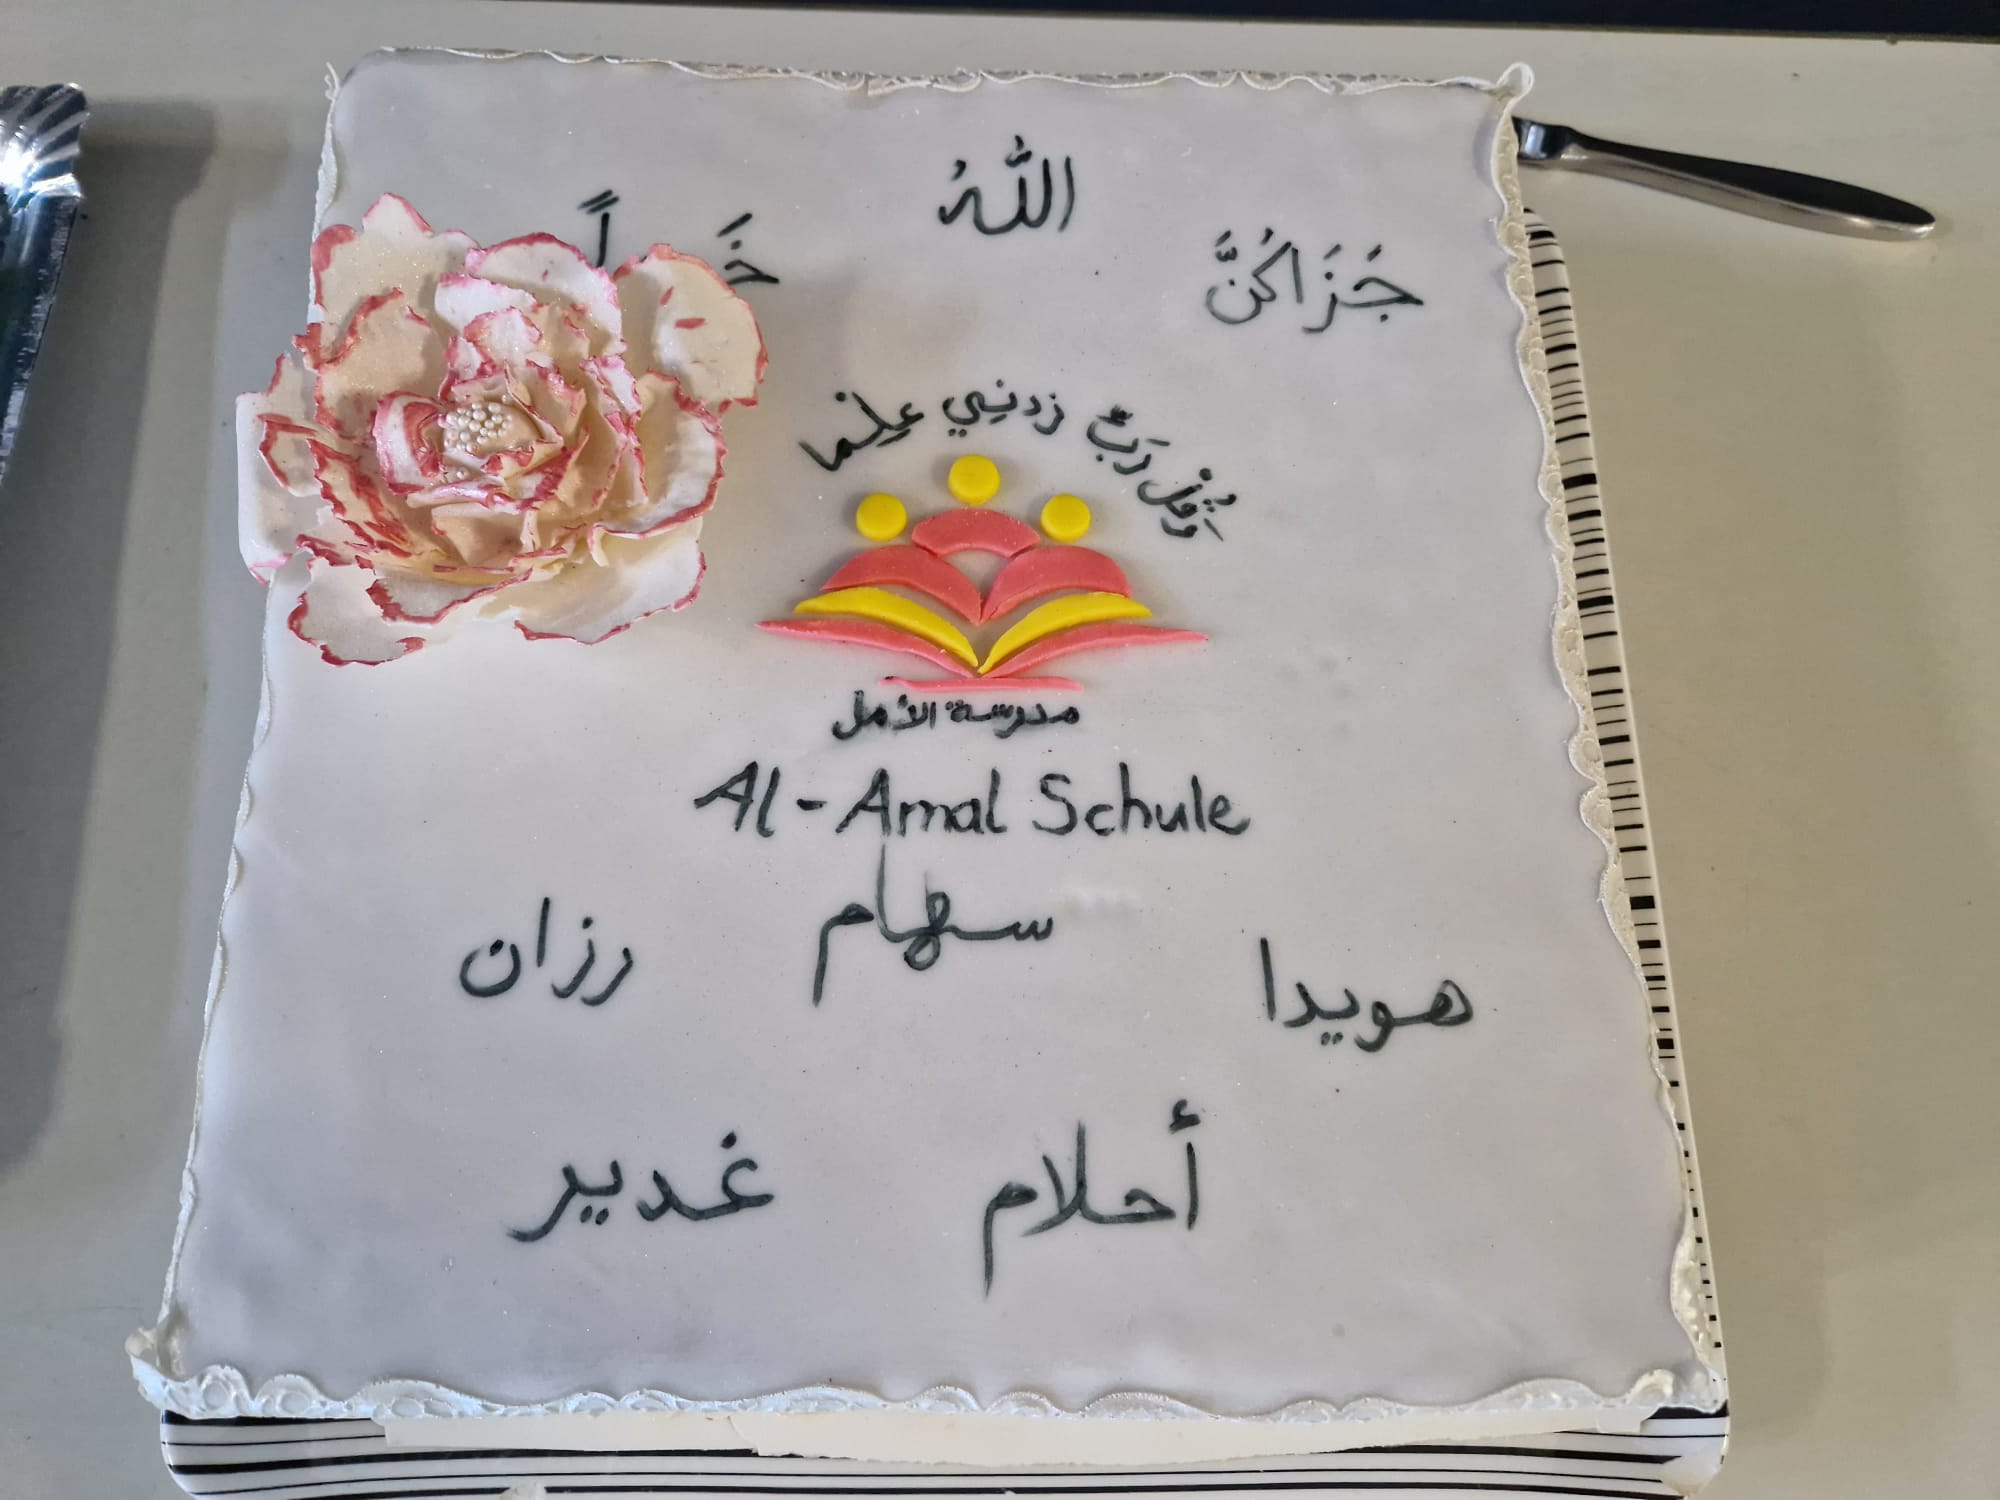 جَزَاكُنَّ اللهُ
وَقُلْ رَبِّ زدنِي عِلْما
مدرسة الأمل
Al-Amal Schule
هويدا سهام رزان
أحلام غدير